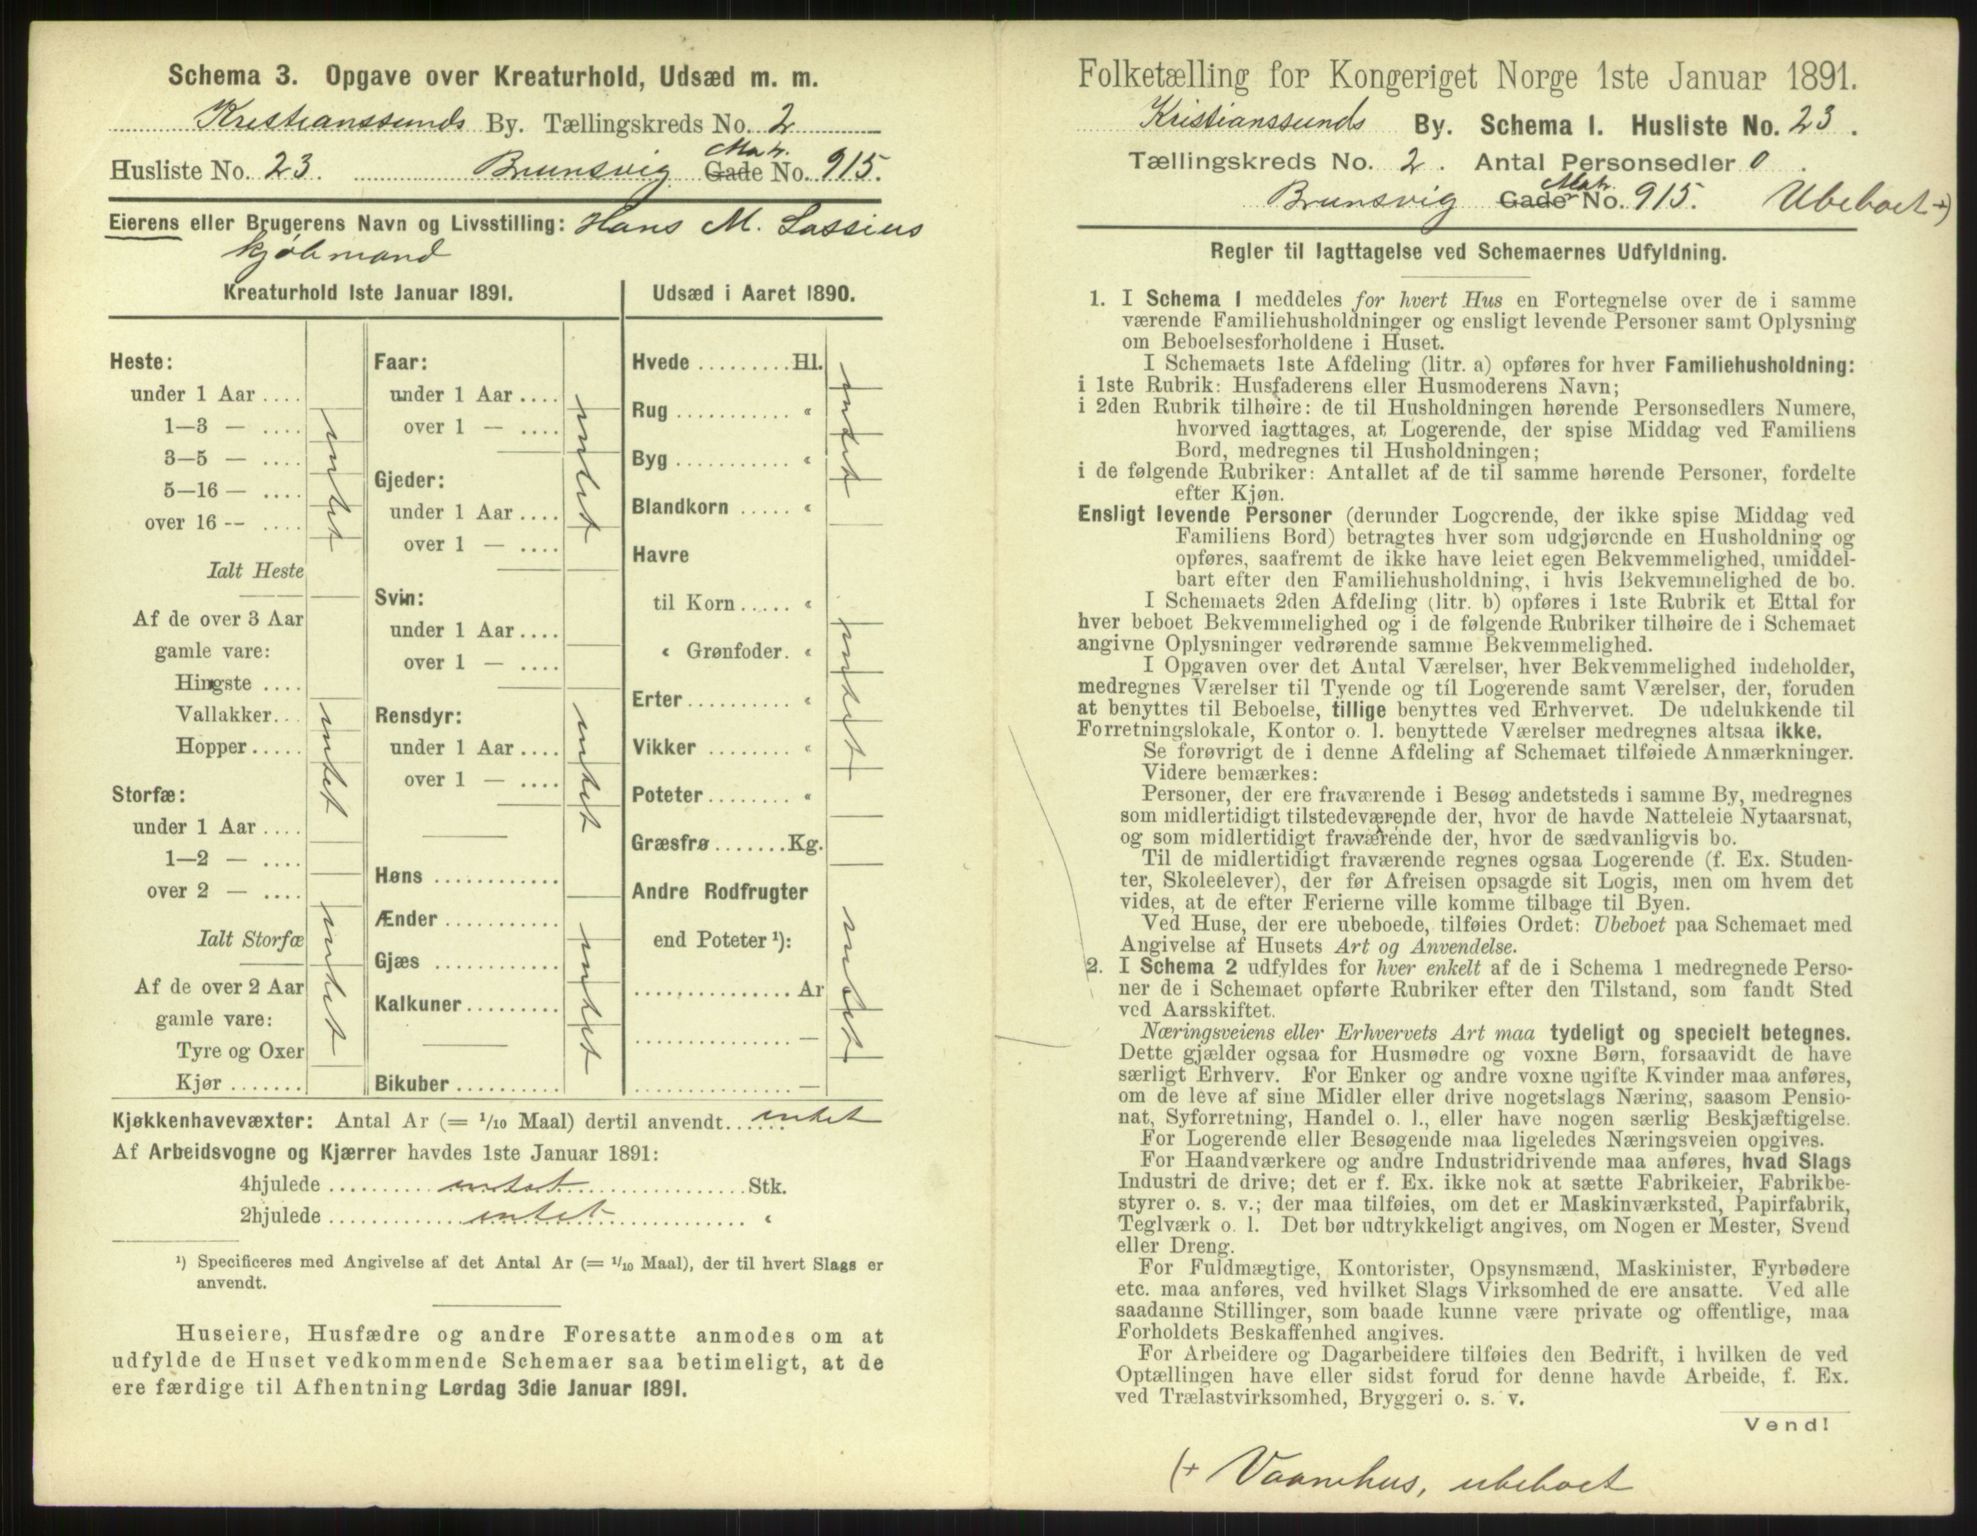 Schema 3. Opgave over Kreaturhold, Udsæd m. m.
Kristianssunds By. Tællingskreds No. 2
Husliste No. 23. Brunsvig Gade Matr. No. 915.
Eierens eller Brugerens Navn og Livsstilling: Hans M. Lossius
kjøbmand
Kreaturhold 1ste Januar 1891.
Heste:
under 1 Aar ....
1—3 — ....
3—5 — ....
5—16 — ....
over 16 -- ....
intet
Ialt Heste
Af de over 3 Aar
gamle vare:
Hingste ....
Vallakker...
Hopper.....
intet
Storfæ:
under 1 Aar ....
1—2 — ....
over 2 — ....
Ialt Storfæ
intet
Af de over 2 Aar
gamle vare:
Tyre og Oxer
Kjør .......
Faar:
under 1 Aar ....
over 1 — ....
intet
Gjeder:
under 1 Aar ....
over 1 — ....
Svin:
under 1 Aar ....
over 1 — ....
Rensdyr:
under 1 Aar ....
over 1 — ....
intet
Høns ............
Ænder ...........
Gjæs ............
Kalkuner.........
intet
Bikuber ..........
Udsæd i Aaret 1890.
Hvede .........Hl.
Rug ........... «
Byg ........... «
intet
Blandkorn ..... «
Havre
til Korn..... «
« Grønfoder. «
Erter.......... «
Vikker ........ «
intet
Poteter........ «
Græsfrø .......Kg.
Andre Rodfrugter
end Poteter ¹):
............... Ar
............... —
............... —
intet
Kjøkkenhavevæxter: Antal Ar (= 1/10 Maal) dertil anvendt...... intet
Af Arbeidsvogne og Kjærrer havdes 1ste Januar 1891:
4hjulede .......... intet .......... Stk.
2hjulede .......... intet .......... «
¹) Specificeres med Angivelse af det Antal Ar (= 1/10 Maal), der til hvert Slags er
anvendt.
Huseiere, Husfædre og andre Foresatte anmodes om at
udfylde de Huset vedkommende Schemaer saa betimeligt, at de
ere færdige til Afhentning Lørdag 3die Januar 1891.
Folketælling for Kongeriget Norge 1ste Januar 1891.
Kristianssunds By. Schema 1. Husliste No. 23.
Tællingskreds No. 2. Antal Personsedler 0.
Brunsvig Gade Matr. No. 915. Ubeboet +)
Regler til Iagttagelse ved Schemaernes Udfyldning.
1. I Schema 1 meddeles for hvert Hus en Fortegnelse over de i samme
værende Familiehusholdninger og ensligt levende Personer samt Oplysning
om Beboelsesforholdene i Huset.
I Schemaets 1ste Afdeling (litr. a) opføres for hver Familiehusholdning:
i 1ste Rubrik: Husfaderens eller Husmoderens Navn;
i 2den Rubrik tilhøire: de til Husholdningen hørende Personsedlers Numere,
hvorved iagttages, at Logerende, der spise Middag ved Familiens
Bord, medregnes til Husholdningen;
i de følgende Rubriker: Antallet af de til samme hørende Personer, fordelte
efter Kjøn.
Ensligt levende Personer (derunder Logerende, der ikke spise Middag ved
Familiens Bord) betragtes hver som udgjørende en Husholdning og
opføres, saafremt de ikke have leiet egen Bekvemmelighed, umiddel-
bart efter den Familiehusholdning, i hvis Bekvemmelighed de bo.
I Schemaets 2den Afdeling (litr. b) opføres i 1ste Rubrik et Ettal for
hver beboet Bekvemmelighed og i de følgende Rubriker tilhøire de i Schemaet
angivne Oplysninger vedrørende samme Bekvemmelighed.
I Opgaven over det Antal Værelser, hver Bekvemmelighed indeholder,
medregnes Værelser til Tyende og til Logerende samt Værelser, der, foruden
at benyttes til Beboelse, tillige benyttes ved Erhvervet. De udelukkende til
Forretningslokale, Kontor o. l. benyttede Værelser medregnes altsaa ikke.
Se forøvrigt de i denne Afdeling af Schemaet tilføiede Anmærkninger.
Videre bemærkes:
Personer, der ere fraværende i Besøg andetsteds i samme By, medregnes
som midlertidigt tilstedeværende der, hvor de havde Natteleie Nytaarsnat,
og som midlertidigt fraværende der, hvor de sædvanligvis bo.
Til de midlertidigt fraværende regnes ogsaa Logerende (f. Ex. Studen-
ter, Skoleelever), der før Afreisen opsagde sit Logis, men om hvem det
vides, at de efter Ferierne ville komme tilbage til Byen.
Ved Huse, der ere ubeboede, tilføies Ordet: Ubeboet paa Schemaet med
Angivelse af Husets Art og Anvendelse.
2. I Schema 2 udfyldes for hver enkelt af de i Schema 1 medregnede Perso-
ner de i Schemaet opførte Rubriker efter den Tilstand, som fandt Sted
ved Aarsskiftet.
Næringsveiens eller Erhvervets Art maa tydeligt og specielt betegnes.
Dette gjælder ogsaa for Husmødre og voxne Børn, forsaavidt de have
særligt Erhverv. For Enker og andre voxne ugifte Kvinder maa anføres,
om de leve af sine Midler eller drive nogetslags Næring, saasom Pensio-
nat, Syforretning, Handel o. l., eller have nogen særlig Beskjæftigelse.
For Logerende eller Besøgende maa ligeledes Næringsveien opgives.
For Haandværkere og andre Industridrivende maa anføres, hvad Slags
Industri de drive; det er f. Ex. ikke nok at sætte Fabrikeier, Fabrikbe-
styrer o. s. v.; der maa tilføies, om det er Maskinværksted, Papirfabrik,
Teglværk o. l. Det bør udtrykkeligt angives, om Nogen er Mester, Svend
eller Dreng.
For Fuldmægtige, Kontorister, Opsynsmænd, Maskinister, Fyrbødere
etc. maa anføres, ved hvilket Slags Virksomhed de ere ansatte. Ved alle
saadanne Stillinger, som baade kunne være private og offentlige, maa
Forholdets Beskaffenhed angives.
For Arbeidere og Dagarbeidere tilføies den Bedrift, i hvilken de ved
Optællingen have eller sidst forud for denne havde Arbeide, f. Ex.
ved Trælastvirksomhed, Bryggeri o. s. v.
Vend!
(+ Vaanehus, ubeboet